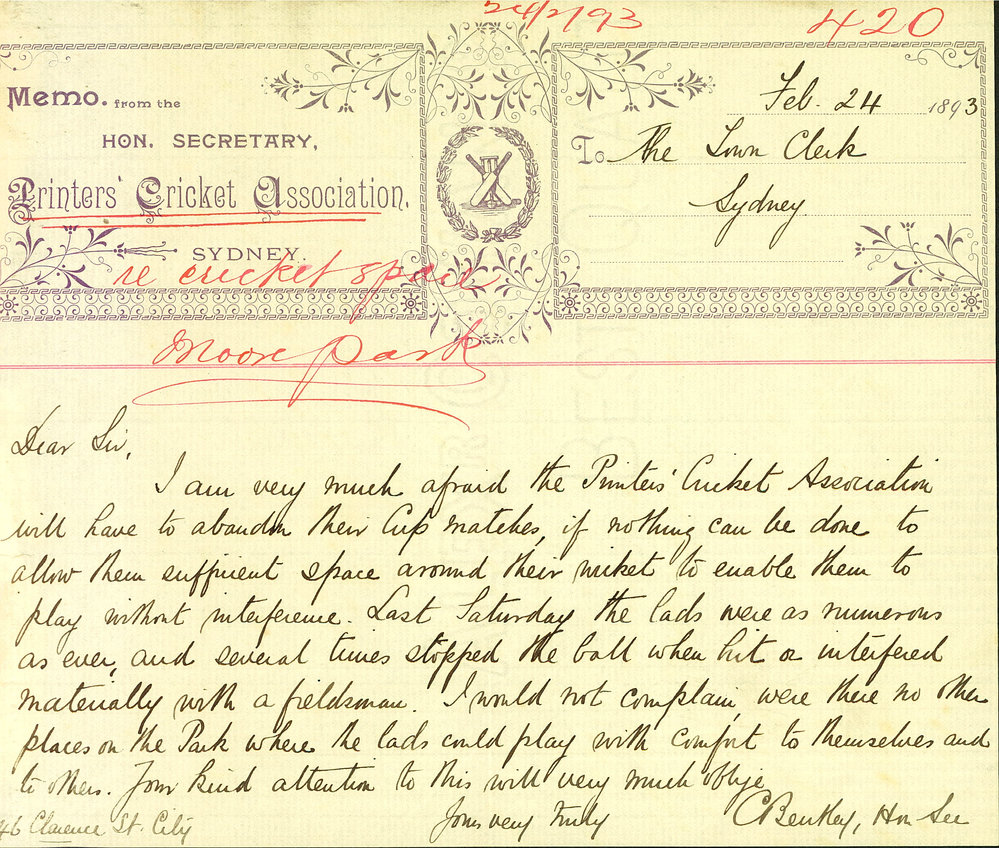 24/2/93
420
Memo. from the
HON. SECRETARY,
Printers' Cricket Association.
SYDNEY.
re cricket space
Moore Park
Feb. 24 1893
To The Town Clerk
Sydney
Dear Sir,
I am very much afraid the Printers' Cricket Association
will have to abandon their Cup matches, if nothing can be done to
allow them sufficient space around their wicket to enable them to
play without interference. Last Saturday the lads were as numerous
as ever, and several times stopped the ball when hit or interfered
materially with a fieldsman. I would not complain, were there no other
places on the Park where the lads could play with comfort to themselves and
to others. Your kind attention to this will very much oblige
Yours very truly
C Bentley, Hon Sec
46 Clarence St. City